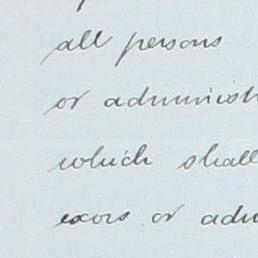 all persons
or administ
which shall
excors or adm